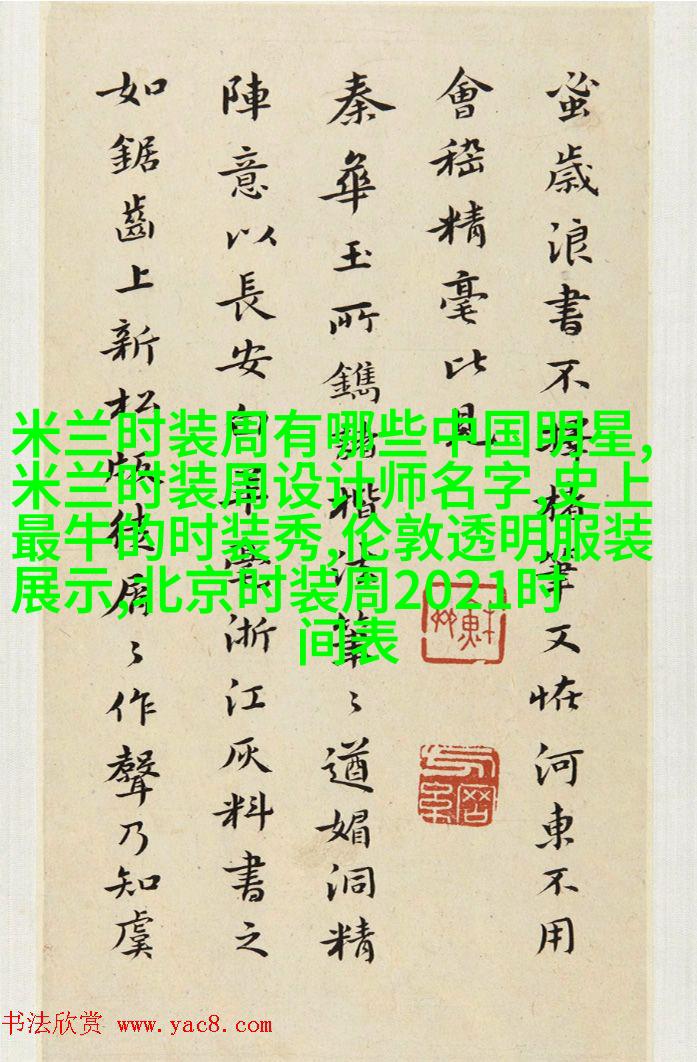 蚤歲浪書不擇楮筆又恠河東不用
會稽精毫比見
秦華玉所鐫楷法筆〻遒媚洞精
陣意以長安白浙江灰料書之
如鋸齒上新松版徒屑〻作聲乃知虞
米兰时装周有哪些中国明星,
米兰时装周设计师名字,史上
最牛的时装秀,伦敦透明服装
展示,北京时装周2021时
间表
书法欣赏 www.yac8.com